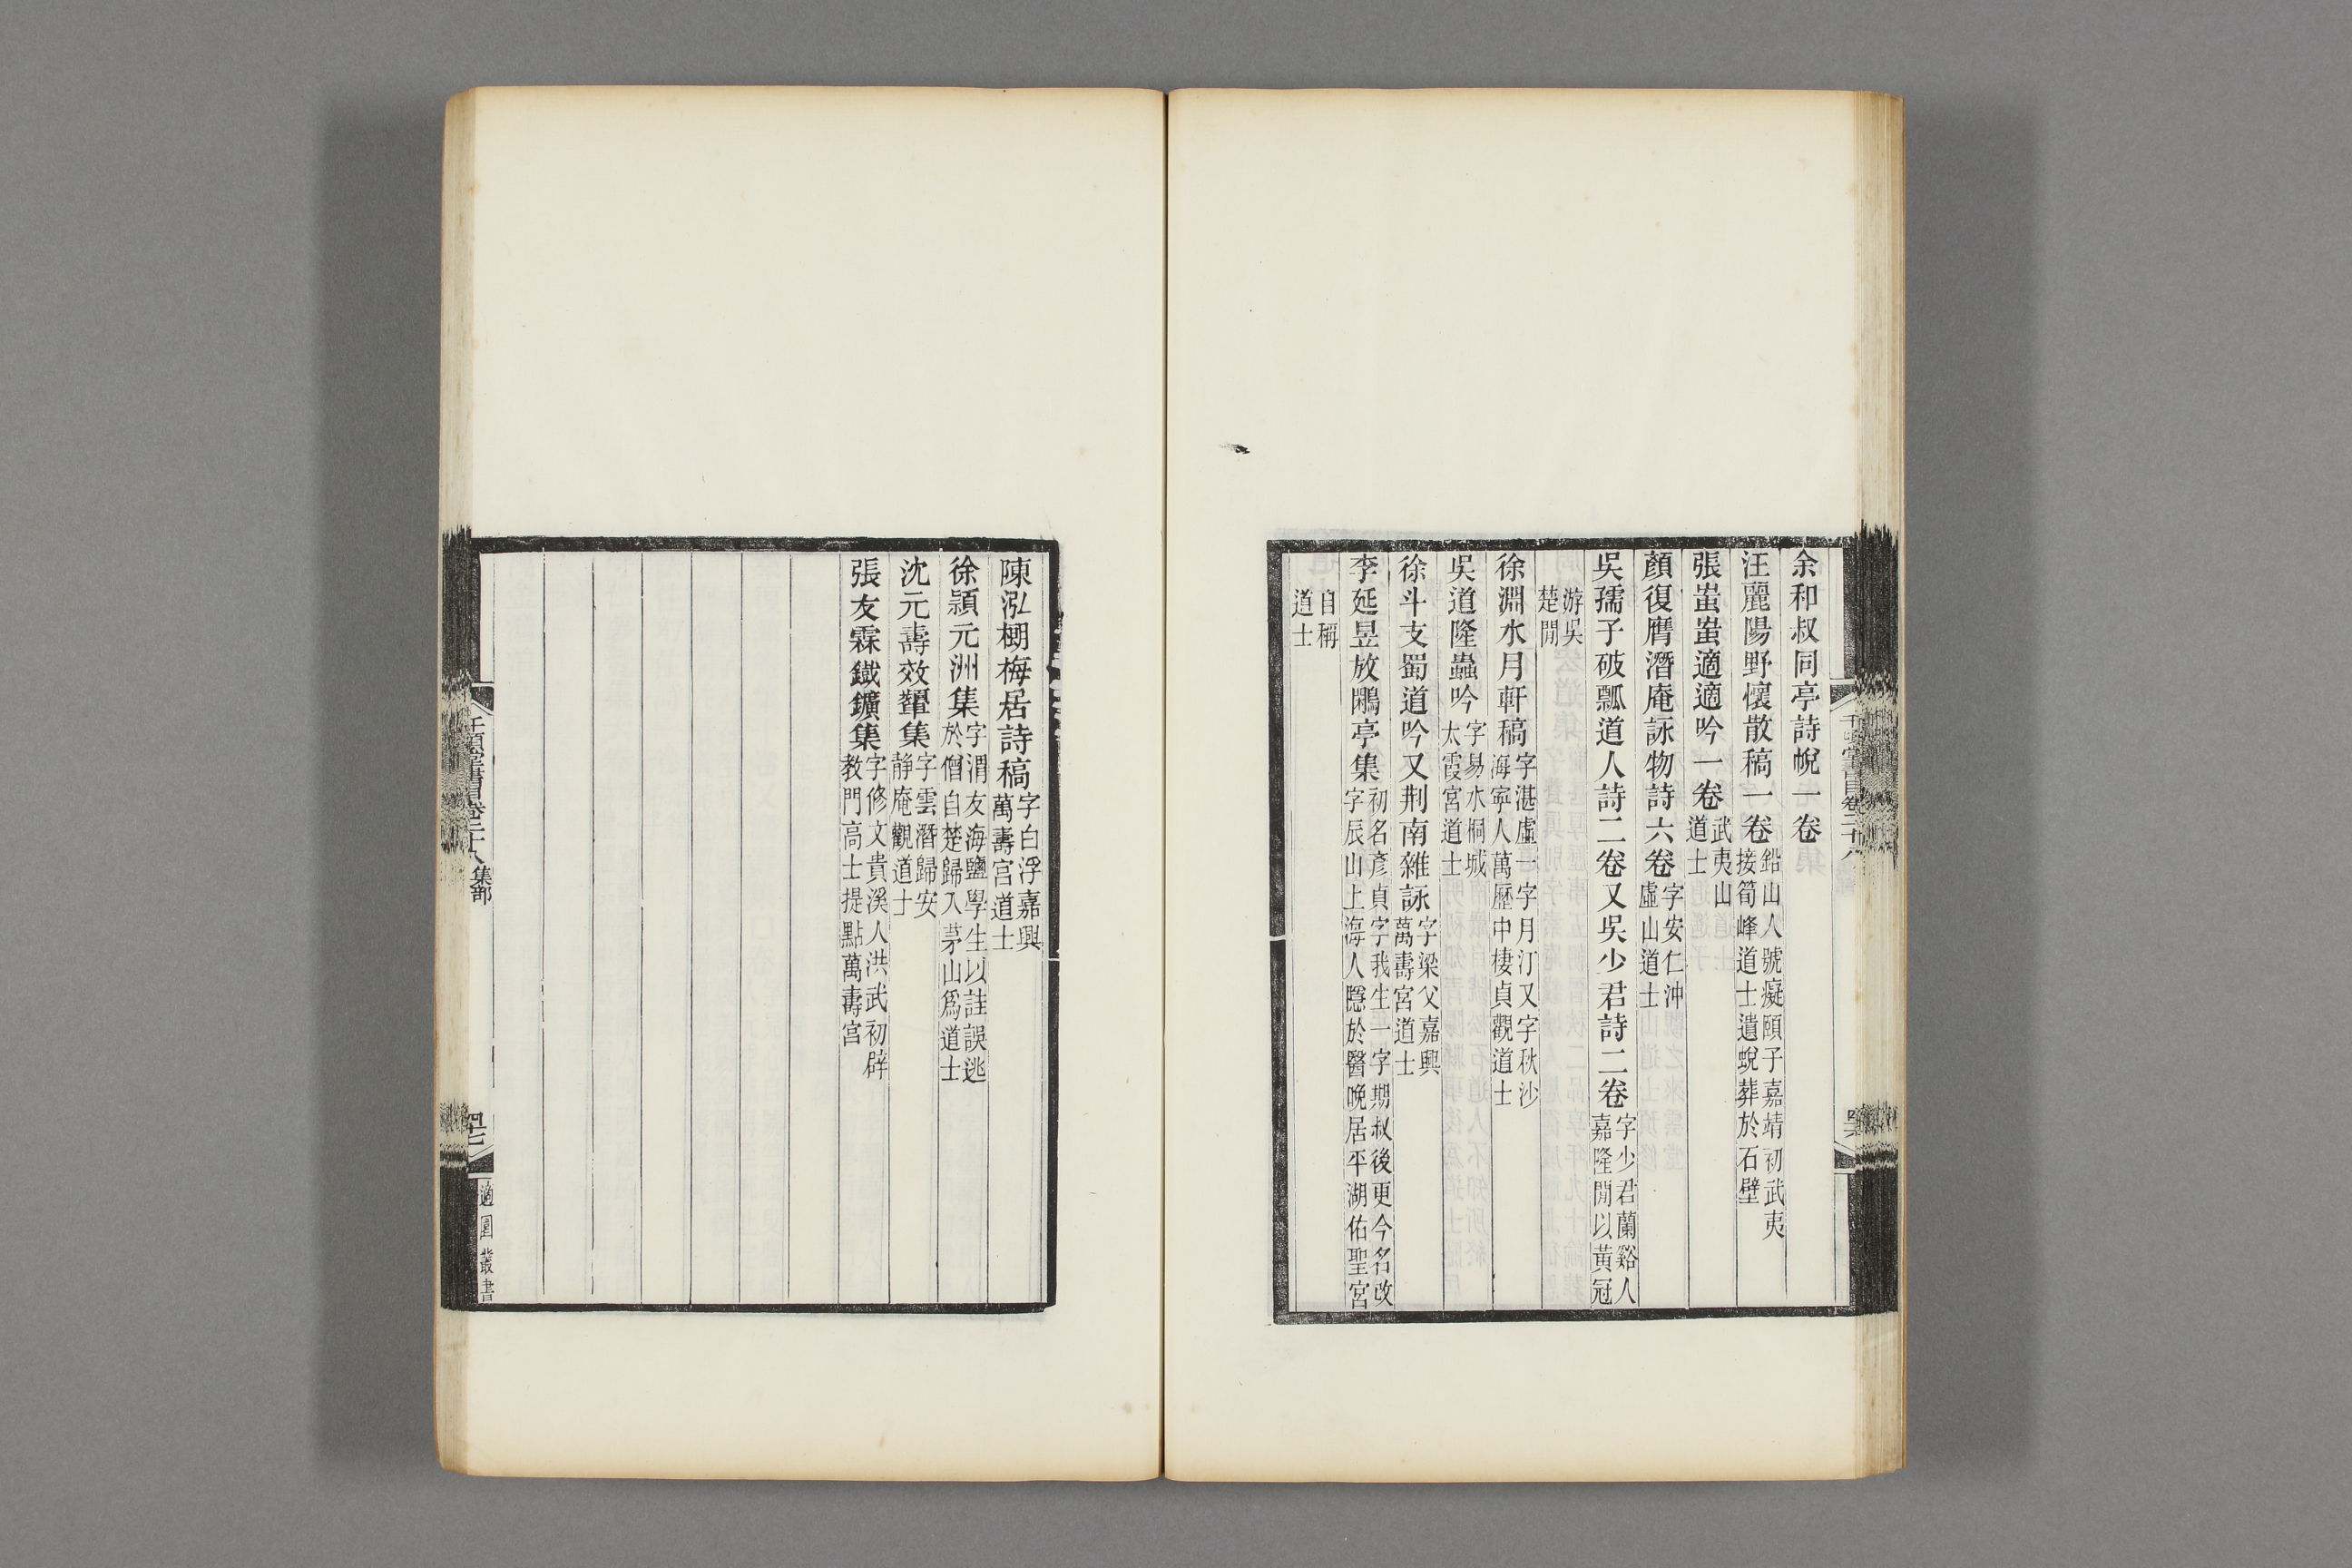 余和叔同亭詩蛻一卷
汪麗陽野懷散稿一卷鉛山人號癡頤子嘉靖初武夷
接筍峰道士遺蛻葬於石壁
張蚩蚩適適吟一卷武夷山
道士
顏復膺潛庵詠物詩六卷字安仁沖
虛山道士
吳孺子破瓢道人詩二卷又吳少君詩二卷字少君蘭谿人
嘉隆閒以黃冠
游吳
楚閒
徐淵水月軒稿字湛虛一字月汀又字秋沙
海寧人萬歷中棲貞觀道士
吳道隆蟲吟字易水桐城
太霞宮道士
徐斗支蜀道吟又荆南雜詠字梁父嘉興
萬壽宮道士
李延昰放鷳亭集初名彥貞字我生一字期叔後更今名改
字辰山上海人隱於醫晚居平湖佑聖宮
自稱
道士
陳泓棚梅居詩稿字白浮嘉興
萬壽宮道士
徐穎元洲集字渭友海鹽學生以註誤逃
於僧自楚歸入茅山爲道士
沈元壽效顰集字雲潛歸安
靜庵觀道士
張友霖鐵鑛集字修文貴溪人洪武初辟
教門高士提點萬壽宮
千頃堂書目卷二十八集部
適園叢書